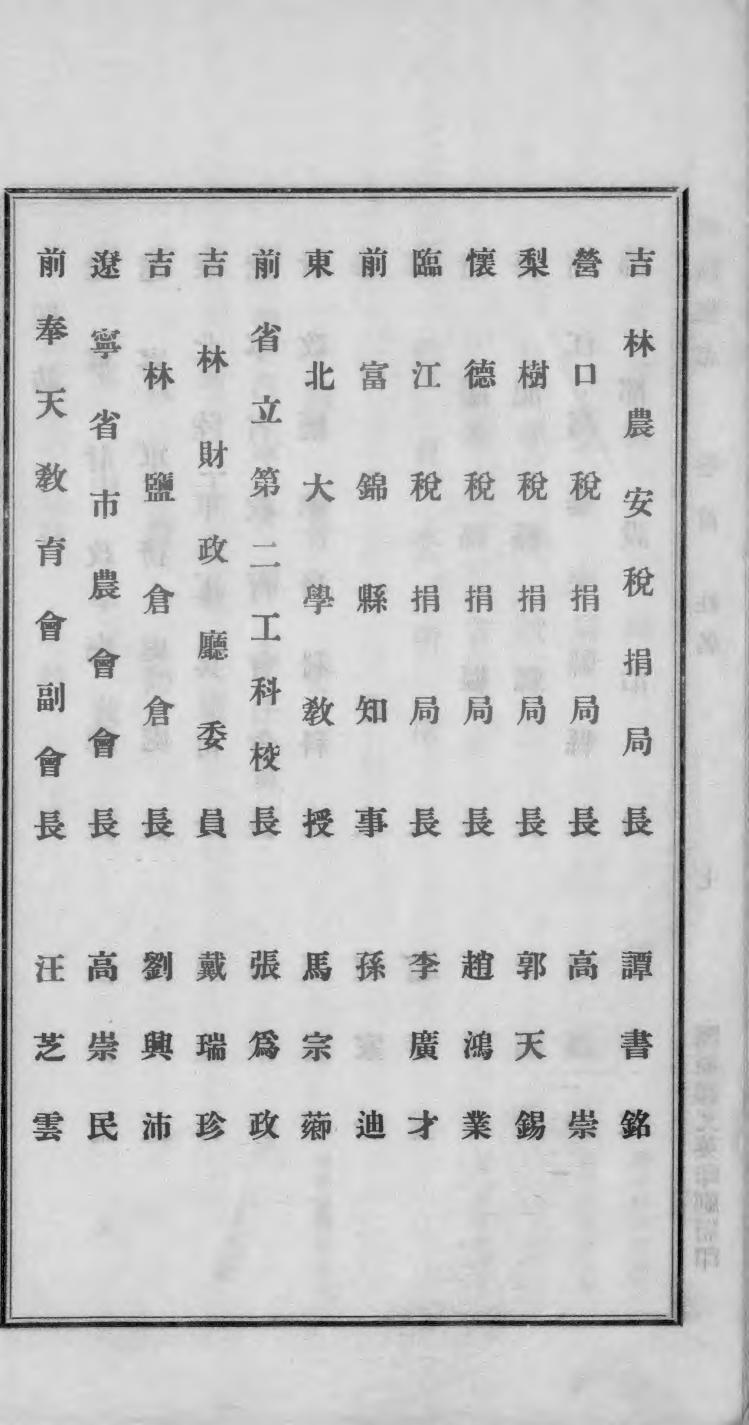 吉林農安稅捐局長 譚書銘
營口稅捐局長 高崇
梨樹稅捐局長 郭天錫
懷德稅捐局長 趙鴻業
臨江稅捐局長 李廣才
前富錦縣知事 孫迪
東北大學教授 馬宗薌
前省立第二工科校長 張爲政
吉林財政廳委員 戴瑞珍
吉林鹽倉倉長 劉興沛
遼寧省市農會會長 高崇民
前奉天教育會副會長 汪芝雲